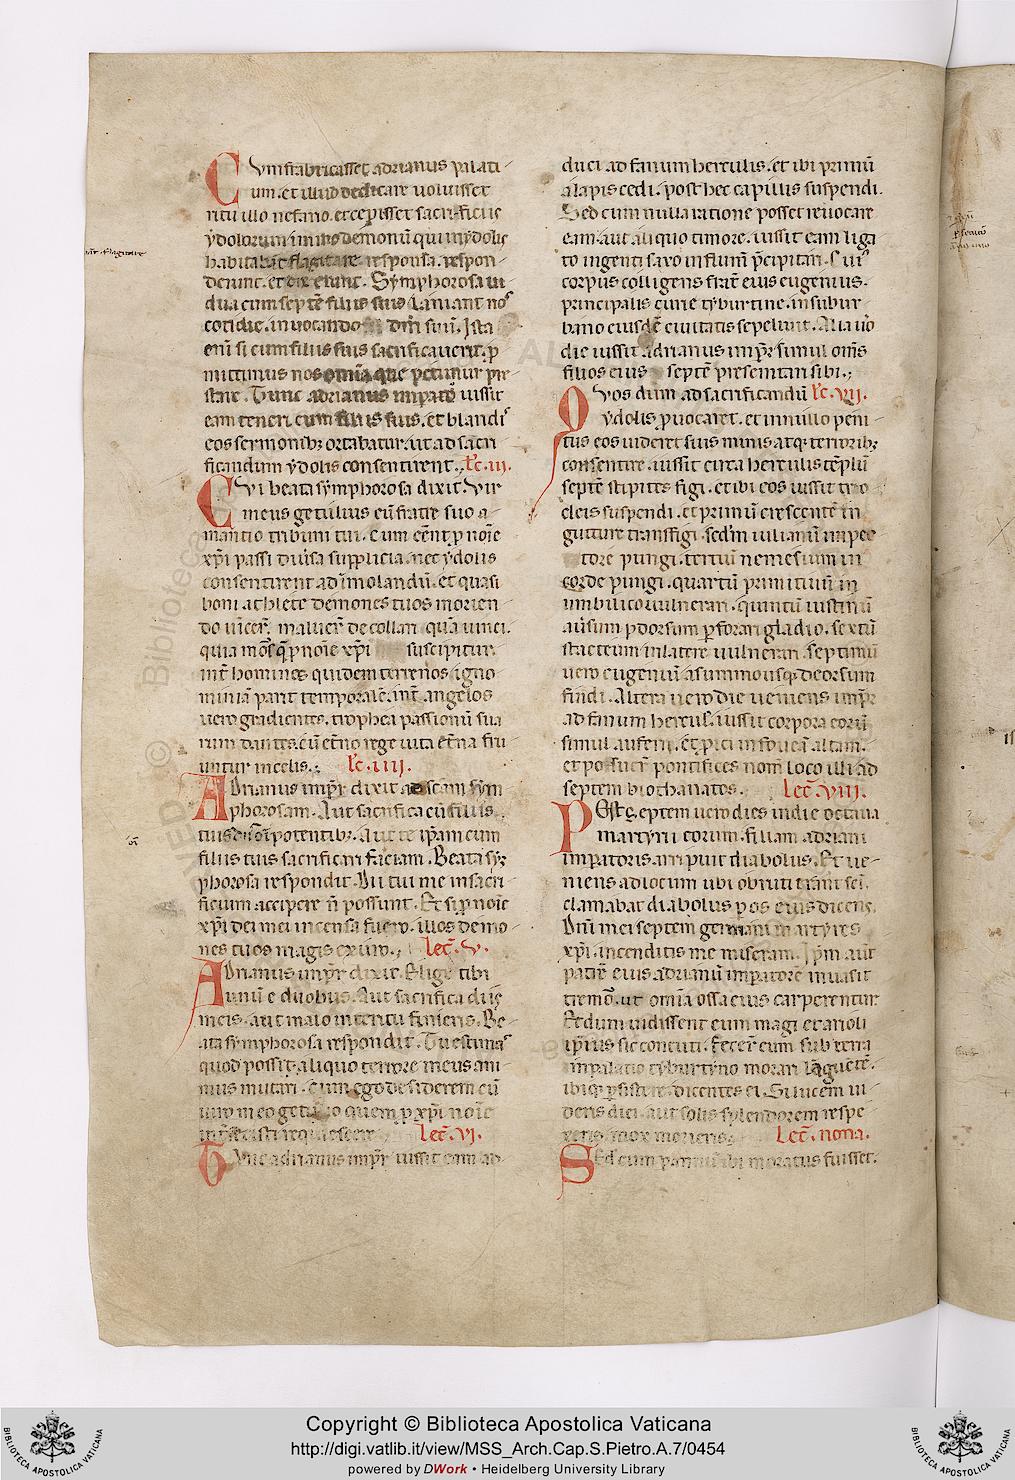 Cum fabricasset adrianus palati
um. et illud dedicare voluisset
ritu illo nefario. et cepisset sacrificiis
ydolorum immo demonū qui in ydolis
habitabāt flagitare responsa. respon
derunt. et dixerunt. Symphorosa vi
dua cum septē filiis suis laniant nos
cotidie. invocando dm̄ suū. Ista
eni si cum filiis suis sacrificaverit. p
mittimus nos omīa que petuntur pre
stare. Tunc adrianus impator iussit
eam teneri cum filiis suis. et blandis
eos sermonibȝ ortabatur. ut ad sacri
ficandum ydolis consentirent. lc̄. iii.
Cui beata symphorosa dixit. Vir
meus getulius cū fratre suo a-
mantio tribuni tui. cum eēnt p noīe
xp̄i passi diūsa supplicia. nec ydolis
consentirent ad īmolandū. et quasi
boni athlete demones tuos morien
do vincerent
quia suscipitur.
int homines quidem terrenos igno
miniā parit temporalē. int angelos
vero gradientes. trophea passionū sua
rum dantes. cū et̄no rege vita et̄na fru
untur in celis. lc̄. iiii.
Adrianus imp̄r dixit ad scam sym
phorosam. Aut sacrifica cū filiis
tuis diis om̄ipotentibȝ. Aut te ip̄am cum
filiis tuis sacrificari faciam. Beata sy
phorosa respondit. Dii tui me in sacri
ficium accipere n̄ possunt. Et si p noīe
xp̄i dei mei incensa fuero. illos demo
nes tuos magis exuro. lec̄. v.
Adrianus imp̄r dixit. Elige tibi
unū e duobus. Aut sacrifica diis
meis. aut malo interitu finieris. Be-
ata symphorosa respondit. Tu estimas
quod possit aliquo terrore meus ani
mus mutari. cum ego desiderem cū
viro meo getulio quem p xp̄i noīe
requiescere lec̄. vi.
Tunc adrianus imp̄r iussit eam ad
duci. ad fanum herculis. et ibi primū
alapis cedi. post hec capillis suspendi.
Sed cum nulla ratione posset revocare
eam. aut aliquo timore. iussit eam liga
to ingenti saxo in flumē p̄cipitari.
corpus colligens frat̄ eius eugenius.
principalis curie tyburtine. in subur
bano eiusdē civitatis sepelivit. Alia v̄o
die iussit adrianus imp̄r simul om̄s
filios eius septē presentari sibi.
Quos dum ad sacrificandū lc̄. vii.
ydolis p̄vocaret. et in nullo peni
tus eos videret suis minis atqȝ terroribȝ
consentire. iussit circa herculis tēplū
septē stipites figi. et ibi eos iussit tro
cleis suspendi. et primū crescentē in
guture transfigi. sed'm iulianū in pec
tore pungi. tertiū nemesium in
corde pungi. quartū primitivū in
umbilico vulnerari. quintū iustinū
av̄sum p dorsum p̄forari gladio. sextū
stacteum in latere vulnerari. septimū
vero eugeniū a summo usqȝ deorsum
findi. Altera vero die veniens imp̄r
ad fanum hercul'. iussit corpora eorū
simul auferri. et p̄ici in foveā altam.
et posuer̄ pontifices nom̄ loco illi ad
septem biothanatos. lec̄. viii.
Post septem vero dies in die octava
martyrii eorum. filiam adriani
imp̄atoris arripuit diabolus. Et ve-
niens ad locum ubi obruti erant sc̄i.
clamabat diabolus p os eius dicens.
Dn̄i mei septem germani martyres
xp̄i. incenditis me miseram. Ip̄m aut
patrē eius adrianū imp̄atorē invasit
tremor. ut om̄ia ossa eius carperentur.
Et dum vidissent eum magi et arioli
ip̄ius sic concuti. fecer̄ eum sub terra
in palatio tyburtino morari
ibiqȝ p̄sistere. dicentes ei. Si lucem vi
deris diei. aut solis splendorem respe
xeris. mox morieris. lec̄. nona.
Sed cum p annū ibi moratus fuisset.
Copyright © Biblioteca Apostolica Vaticana
http://digi.vatlib.it/view/MSS_Arch.Cap.S.Pietro.A.7/0454
powered by DWork • Heidelberg University Library
BIBLIOTECA APOSTOLICA VATICANA
BIBLIOTECA APOSTOLICA VATICANA